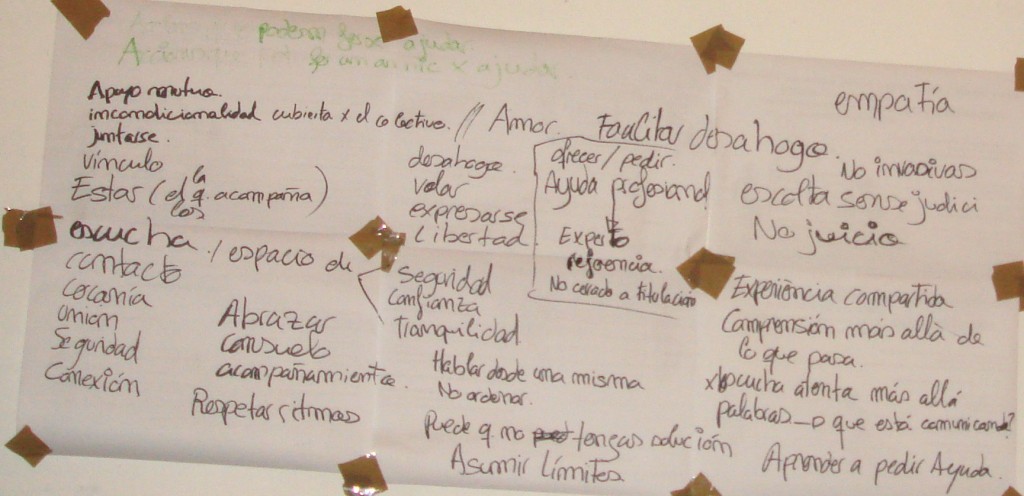 podemos ajudar.
x ajudar.
Apoyo mutuo.
incondicionalidad cubierta x el colectivo. //
juntarse.
vínculo
Estar (el q. acompaña)
la
los
escucha / espacio de
contacto
cercanía
unión
Seguridad
Conexión
Abrazar
consuelo
acompañamiento.
Respetar ritmos
Amor.
desahogo
volar
expresarse
libertad.
seguridad
confianza
tranquilidad
Hablar desde una misma
No ordenar.
Puede q no tengas solución
Asumir límites
Facilitar desahogo.
ofrecer / pedir.
Ayuda profesional
Experto
referencia.
No cerado a titulación
empatía
No invadivas
escolta sense judici
No juicio
Experiència compartida
Comprensión más allà de
lo que pasa.
escucha atenta más allá
palabras que está comunicando?
Aprender a pedir Ayuda.